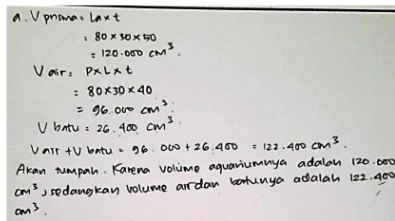 a. V prisma = La x t
= 80 x 30 x 50
= 120.000 cm³.
V air = P x L x t
= 80 x 30 x 40
= 96.000 cm³.
V batu = 26.400 cm³.
V air + V batu = 96.000 + 26.400 = 122.400 cm³.
Akan tumpah. Karena volume aquariumnya adalah 120.000
cm³, sedangkan volume air dan batunya adalah 122.400
cm³.